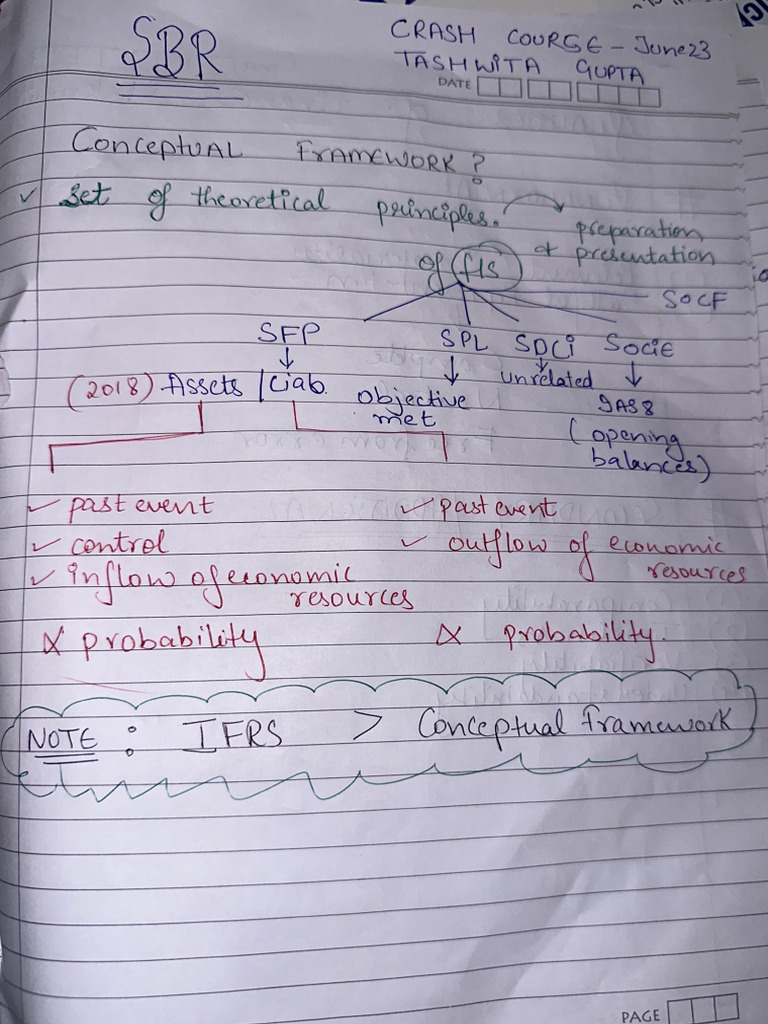 SBR
CRASH COURSE - June 23
TASHWITA GUPTA
DATE
Conceptual Framework?
✓ Set of theoretical principles. preparation
& presentation
of f/s
SOCF
SFP SPL SOCi SociE
(2018) Assets / Liab. objective met unrelated IAS 8
(opening
balances)
✓ past event ✓ past event
✓ control ✓ outflow of economic
resources
✓ inflow of economic
resources
✗ probability ✗ probability.
NOTE : IFRS > Conceptual framework
PAGE